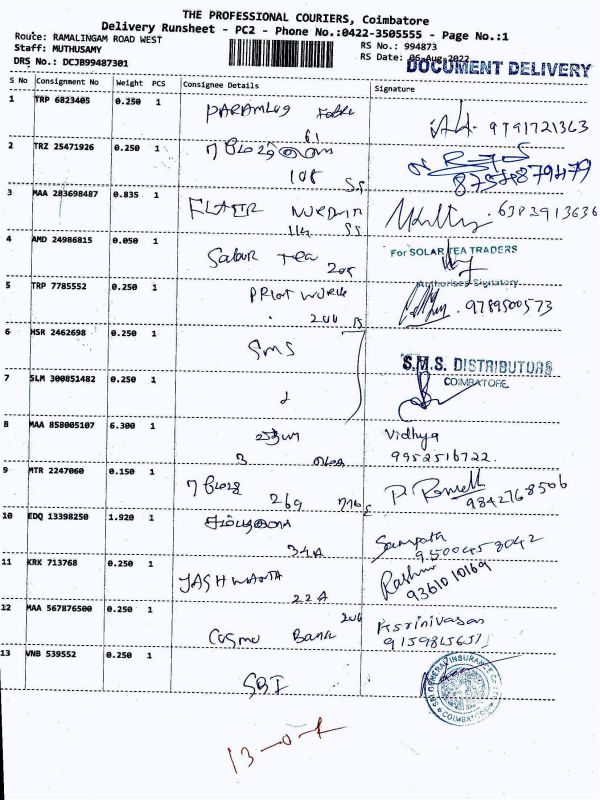 THE PROFESSIONAL COURIERS, Coimbatore
Delivery Runsheet - PC2 - Phone No.:0422-3505555 - Page No.:1
Route: RAMALINGAM ROAD WEST
RS No.: 994873
Staff: MUTHUSAMY
RS Date: 06-Aug-2022
DRS No.: DCJB99487301
DOCUMENT DELIVERY
S No Consignment No Weight PCS Consignee Details Signature
1 TRP 6823405 0.250 1
9791721363
61
2 TRZ 25471926 0.250 1
108 SS
8754879479
3 MAA 283698487 0.835 1 FLAIR
114 SS
6382913636
4 AMD 24986815 0.050 1 Solar Tea
205
For SOLAR TEA TRADERS
Authorised Signatory
5 TRP 7785552 0.250 1 PRINT WORLD
9789500573
6 HSR 2462698 0.250 1 SMS
S.M.S. DISTRIBUTORS
COIMBATORE
7 SLM 300851482 0.250 1
8 MAA 858005107 6.300 1 வித்யா
Vidhya
9952516722
9 MTR 2247060 0.150 1
269
9842768506
10 EDQ 13398250 1.920 1
34A
Sampath
9500458042
11 KRK 713768 0.250 1 JASHWANTH
22A
9361010169
12 MAA 567876500 0.250 1
Cosmo Bank
K Srinivasan
13 VNB 539552 0.250 1
SBI
SBI GENERAL INSURANCE
COIMBATORE
13-0-1